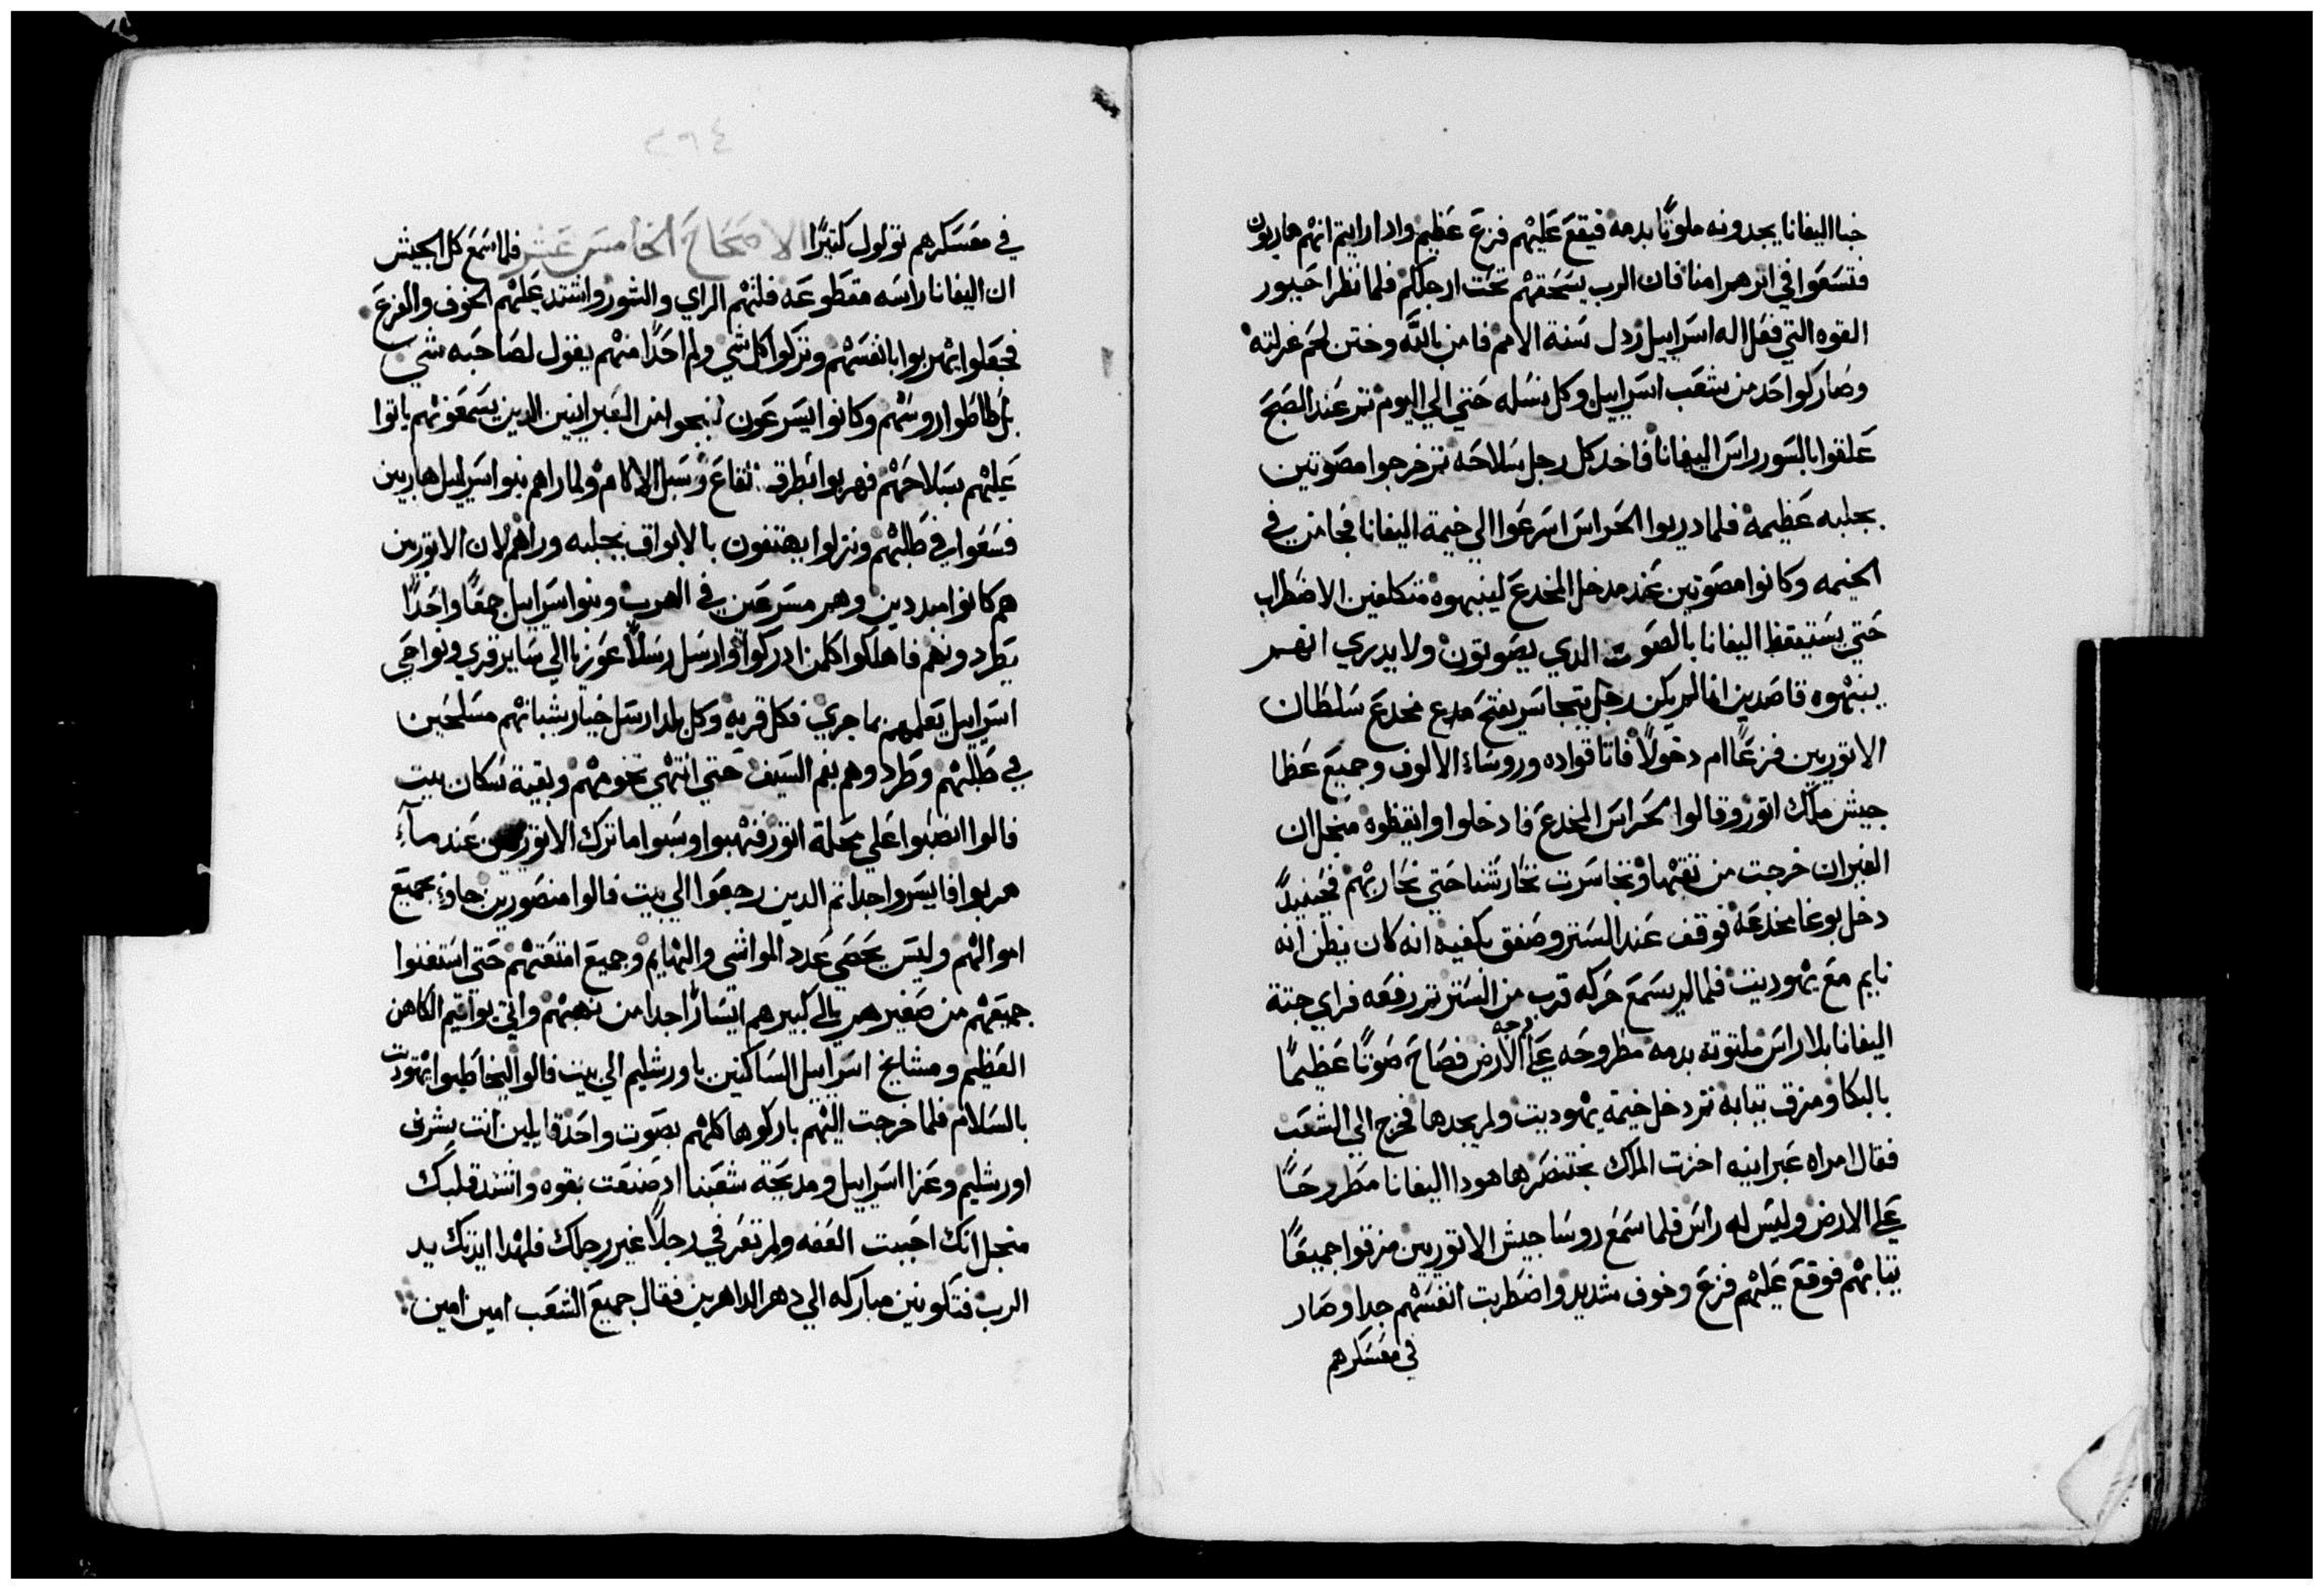 خبا اليفانا يجدونه ملوثًا بدمه فيقع عليهم فزع عظيم وادا رايتم انهم هاربون
فتسعوا في اثرهم امنا فان الرب يسحقهم تحت ارجلكم فلما نظر احبور
القوه التي فعل اله اسراييل رذل سنة الامم فامن بالله وختن لحم غرلته
وصار كواحد من شعب اسراييل وكل نسله حتي الي اليوم ثم عند الصبح
علقوا بالسور راس اليفانا فاخد كل رجل سلاحه ثم خرجوا مصوتين
بجلبه عظيمه فلما دريوا الحراس اسرعوا الي خيمة اليفانا فجا من في
الخيمه وكانوا مصوتين عند مدخل المخدع لينبهوه متكلفين الاضطراب
حتي يستيقظ اليفانا بالصوت الدي يصوتون ولا يدري انهم
ينبهوه قاصدين انما لم يكن رجل يتجاسر يفتح مخدع سلطان
الاتوريين فزعًا ام دخولًا فاتا قواده وروساء الالوف وجميع عظما
جيش ملك اتور وقالوا لحراس المخدع فادخلوا وايقظوه منجل ان
الفيران خرجت من نقبها وتجاسرت تحارشنا حتي نحاربهم فحينيدًا
دخل بوغا مخدعه فوقف عند الستر وصفق بكفيه انه كان يظن انه
نايم مع يهوديت فلما لم يسمع حركه قرب من الستر ثم رفعه فراي جتة
اليفانا بلا راس ملتوته بدمه مطروحه علي الارض فصاح صوتًا عظيمًا
بالبكا ومزق تيابه ثم دخل خيمة يهوديت ولم يجدها فخرج الي الشعب
فقال امراه عبرانيه اخزت الملك بختنصر ها هودا اليفانا مطروحًا
علي الارض وليس له راس فلما سمع روسا جيش الاتوريين مزقوا جميعًا
تيابهم فوقع عليهم فزع وخوف شديد واضطربت انفسهم جدا وصار
في معسكرهم
٢٩٤
في معسكرهم تولول كتيرًا الاصحاح الخامس عشر فلما سمع كل الجيش
ان اليفانا راسه مقطوعه فلتهم الراي والشور واشتد عليهم الخوف والفزع
فجعلوا يهربوا بانفسهم وتركوا كل شي ولم احدًا منهم يقول لصاحبه شي
بل طاطوا روسهم وكانوا يسرعون لينجوا من العبرانيين الدين يسمعونهم ياتوا
عليهم بسلاحهم فهربوا بطرق بقاع وسبل الاكام ولما راهم بنو اسراييل هاربين
فسعوا في طلبهم ونزلوا يهتفون بالابواق بجلبه وراهم لان الاتوريين
هم كانوا مبددين وهم مسرعين في الهرب وبنو اسراييل جمعًا واحدًا
يطردونهم فاهلكوا كلمن ادركوا وارسل رسلًا عوزيا الي ساير قري ونواحي
اسراييل يعلمهم بما جري فكل قريه وكل بلد ارسل خيار شبانهم مسلحين
في طلبهم وطردوهم بفم السيف حتي انتهي تخومهم وبقية سكان بيت
فالوا انصبوا علي محلة اتور فنهبوا وسبوا ما ترك الاتوريين عند ما
هربوا فايسروا جدا ثم الدين رجعوا الي بيت فالوا منصورين جاو بجميع
اموالهم وليس يحصي عدد المواشي والبهايم وجميع امتعتهم حتي استغنوا
جميعهم من صغيرهم الي كبيرهم ايسارًا جدا من نهبهم واتي يواقيم الكاهن
العظيم ومشايخ اسراييل الساكنين باورشليم الي بيت فالوا ليخاطبوا يهوديت
بالسلام فلما خرجت اليهم باركوها كلهم بصوت واحد قايلين انت بشرف
اورشليم وعزا اسراييل ومدبحة شعبنا اد صنعت بقوه واشتد قلبك
منجل انك احببت العفه ولم تعرفي رجلًا غير رجلك فلهدا ايدتك يد
الرب فتكونين مباركه الي دهر الداهرين فقال جميع الشعب امين امين